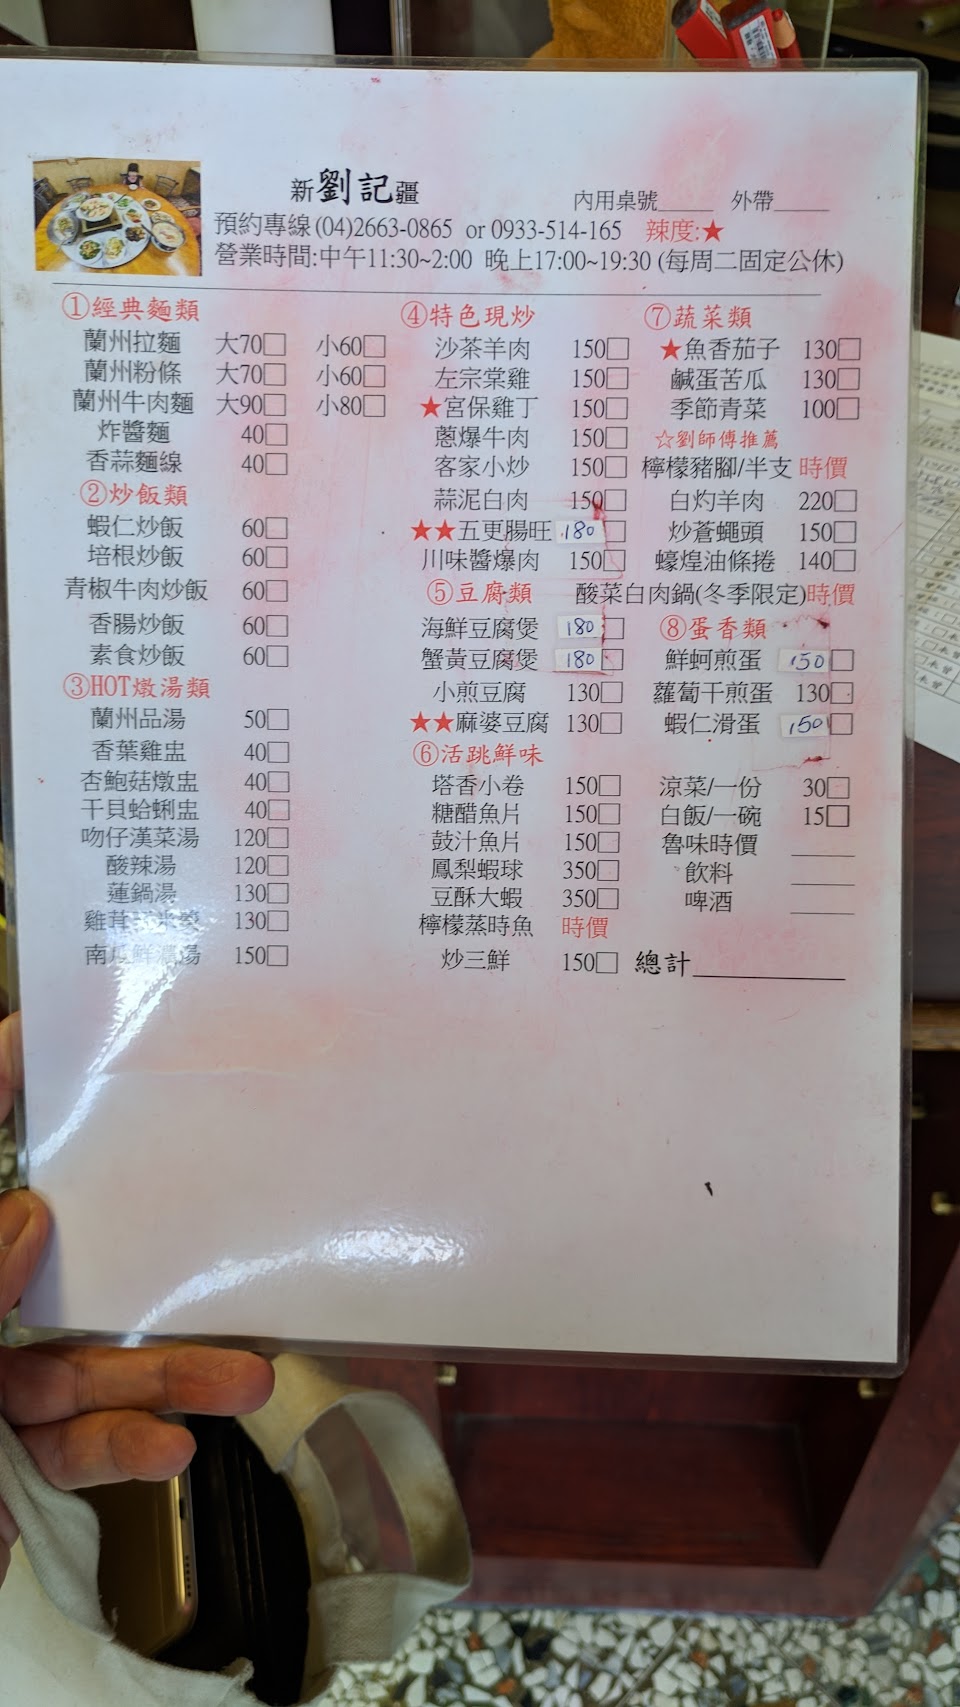 新劉記疆
內用桌號_____ 外帶_____
預約專線(04)2663-0865 or 0933-514-165 辣度:★
營業時間:中午11:30~2:00 晚上17:00~19:30 (每周二固定公休)
①經典麵類
蘭州拉麵 大70□ 小60□
蘭州粉條 大70□ 小60□
蘭州牛肉麵 大90□ 小80□
炸醬麵 40□
香蒜麵線 40□
②炒飯類
蝦仁炒飯 60□
培根炒飯 60□
青椒牛肉炒飯 60□
香腸炒飯 60□
素食炒飯 60□
③HOT燉湯類
蘭州品湯 50□
香葉雞盅 40□
杏鮑菇燉盅 40□
干貝蛤蜊盅 40□
吻仔漢菜湯 120□
酸辣湯 120□
蓮鍋湯 130□
雞茸 130□
南 湯 150□
④特色現炒
沙茶羊肉 150□
左宗棠雞 150□
★宮保雞丁 150□
蔥爆牛肉 150□
客家小炒 150□
蒜泥白肉 150□
★★五更腸旺 180□
川味醬爆肉 150□
⑤豆腐類
海鮮豆腐煲 180□
蟹黃豆腐煲 180□
小煎豆腐 130□
★★麻婆豆腐 130□
⑥活跳鮮味
塔香小卷 150□
糖醋魚片 150□
鼓汁魚片 150□
鳳梨蝦球 350□
豆酥大蝦 350□
檸檬蒸時魚 時價
炒三鮮 150□
⑦蔬菜類
★魚香茄子 130□
鹹蛋苦瓜 130□
季節青菜 100□
☆劉師傅推薦
檸檬豬腳/半支 時價
白灼羊肉 220□
炒蒼蠅頭 150□
蠔煌油條捲 140□
酸菜白肉鍋(冬季限定)時價
⑧蛋香類
鮮蚵煎蛋 150□
蘿蔔干煎蛋 130□
蝦仁滑蛋 150□
涼菜/一份 30□
白飯/一碗 15□
魯味時價 _____
飲料 _____
啤酒 _____
總計__________